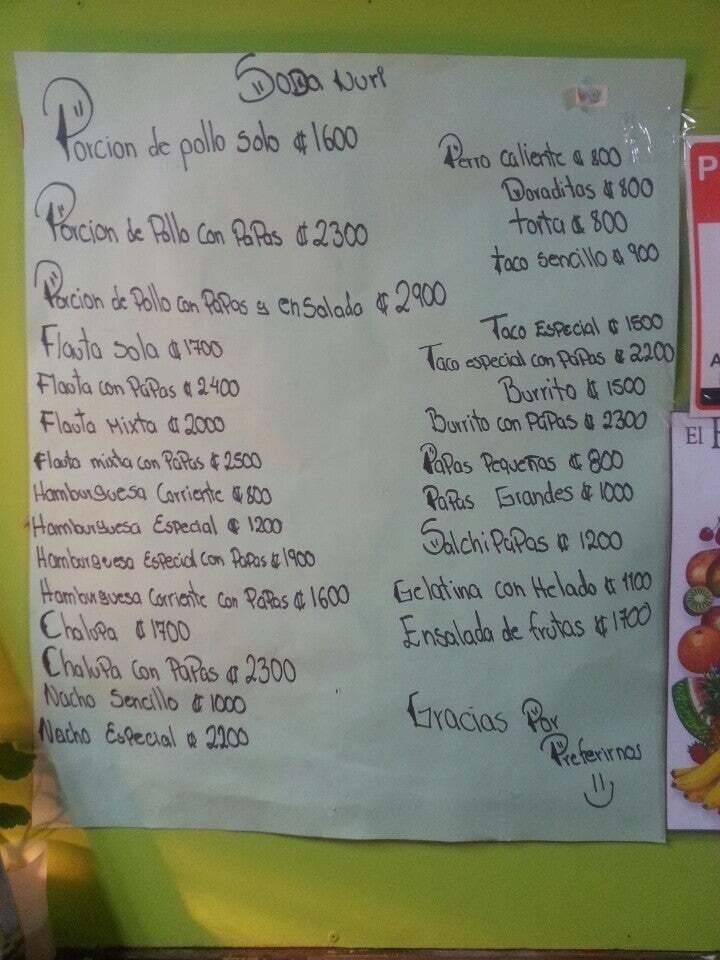 Soda Nuri
Porcion de pollo solo ₡1600
Porcion de Pollo con PaPas ₡2300
Porcion de Pollo con PaPas y enSalada ₡2900
Flauta Sola ₡1700
Flauta con PaPas ₡2400
Flauta Mixta ₡2000
Flauta mixta con PaPas ₡2500
Hamburguesa Corriente ₡800
Hamburguesa Especial ₡1200
Hamburguesa Especial con Papas ₡1900
Hamburguesa Corriente con PaPas ₡1600
Chalupa ₡1700
Chalupa con PaPas ₡2300
Nacho Sencillo ₡1000
Nacho Especial ₡2200
Perro caliente ₡800
Doraditas ₡800
torta ₡800
taco sencillo ₡900
Taco Especial ₡1500
Taco especial con PaPas ₡2200
Burrito ₡1500
Burrito con PaPas ₡2300
PaPas Pequeñas ₡800
PaPas Grandes ₡1000
SalchiPaPas ₡1200
Gelatina con Helado ₡1100
Ensalada de frutas ₡1700
Gracias Por
Preferirnos
P
A
El